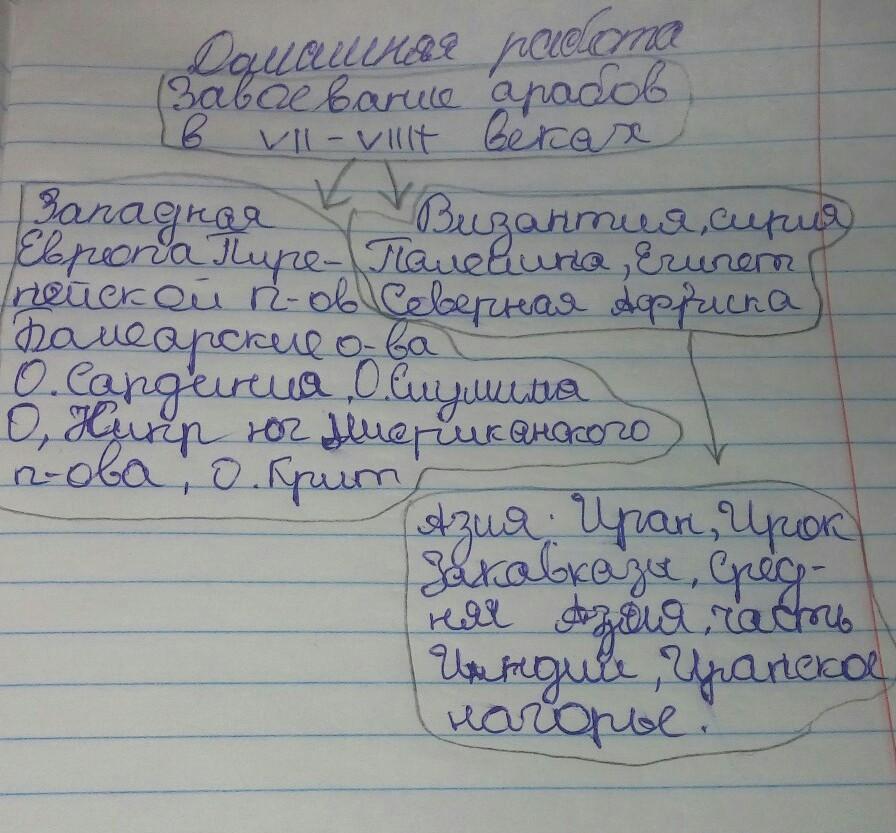 Домашная работа
Завоевание арабов
в VII-VIII+ веках
Западная
Европа Пире-
нейской п-ов
Балеарские о-ва
О.Сардиния, О.Сицилиа
О, Кипр юг Американского
п-ова, О.Крит
Византия, сирия
Палестина, Египет
Северная Африка
Азия: Иран, Ирок
Закавказы, Сред-
няя Азия, часть
Индии, Иранское
нагорье.